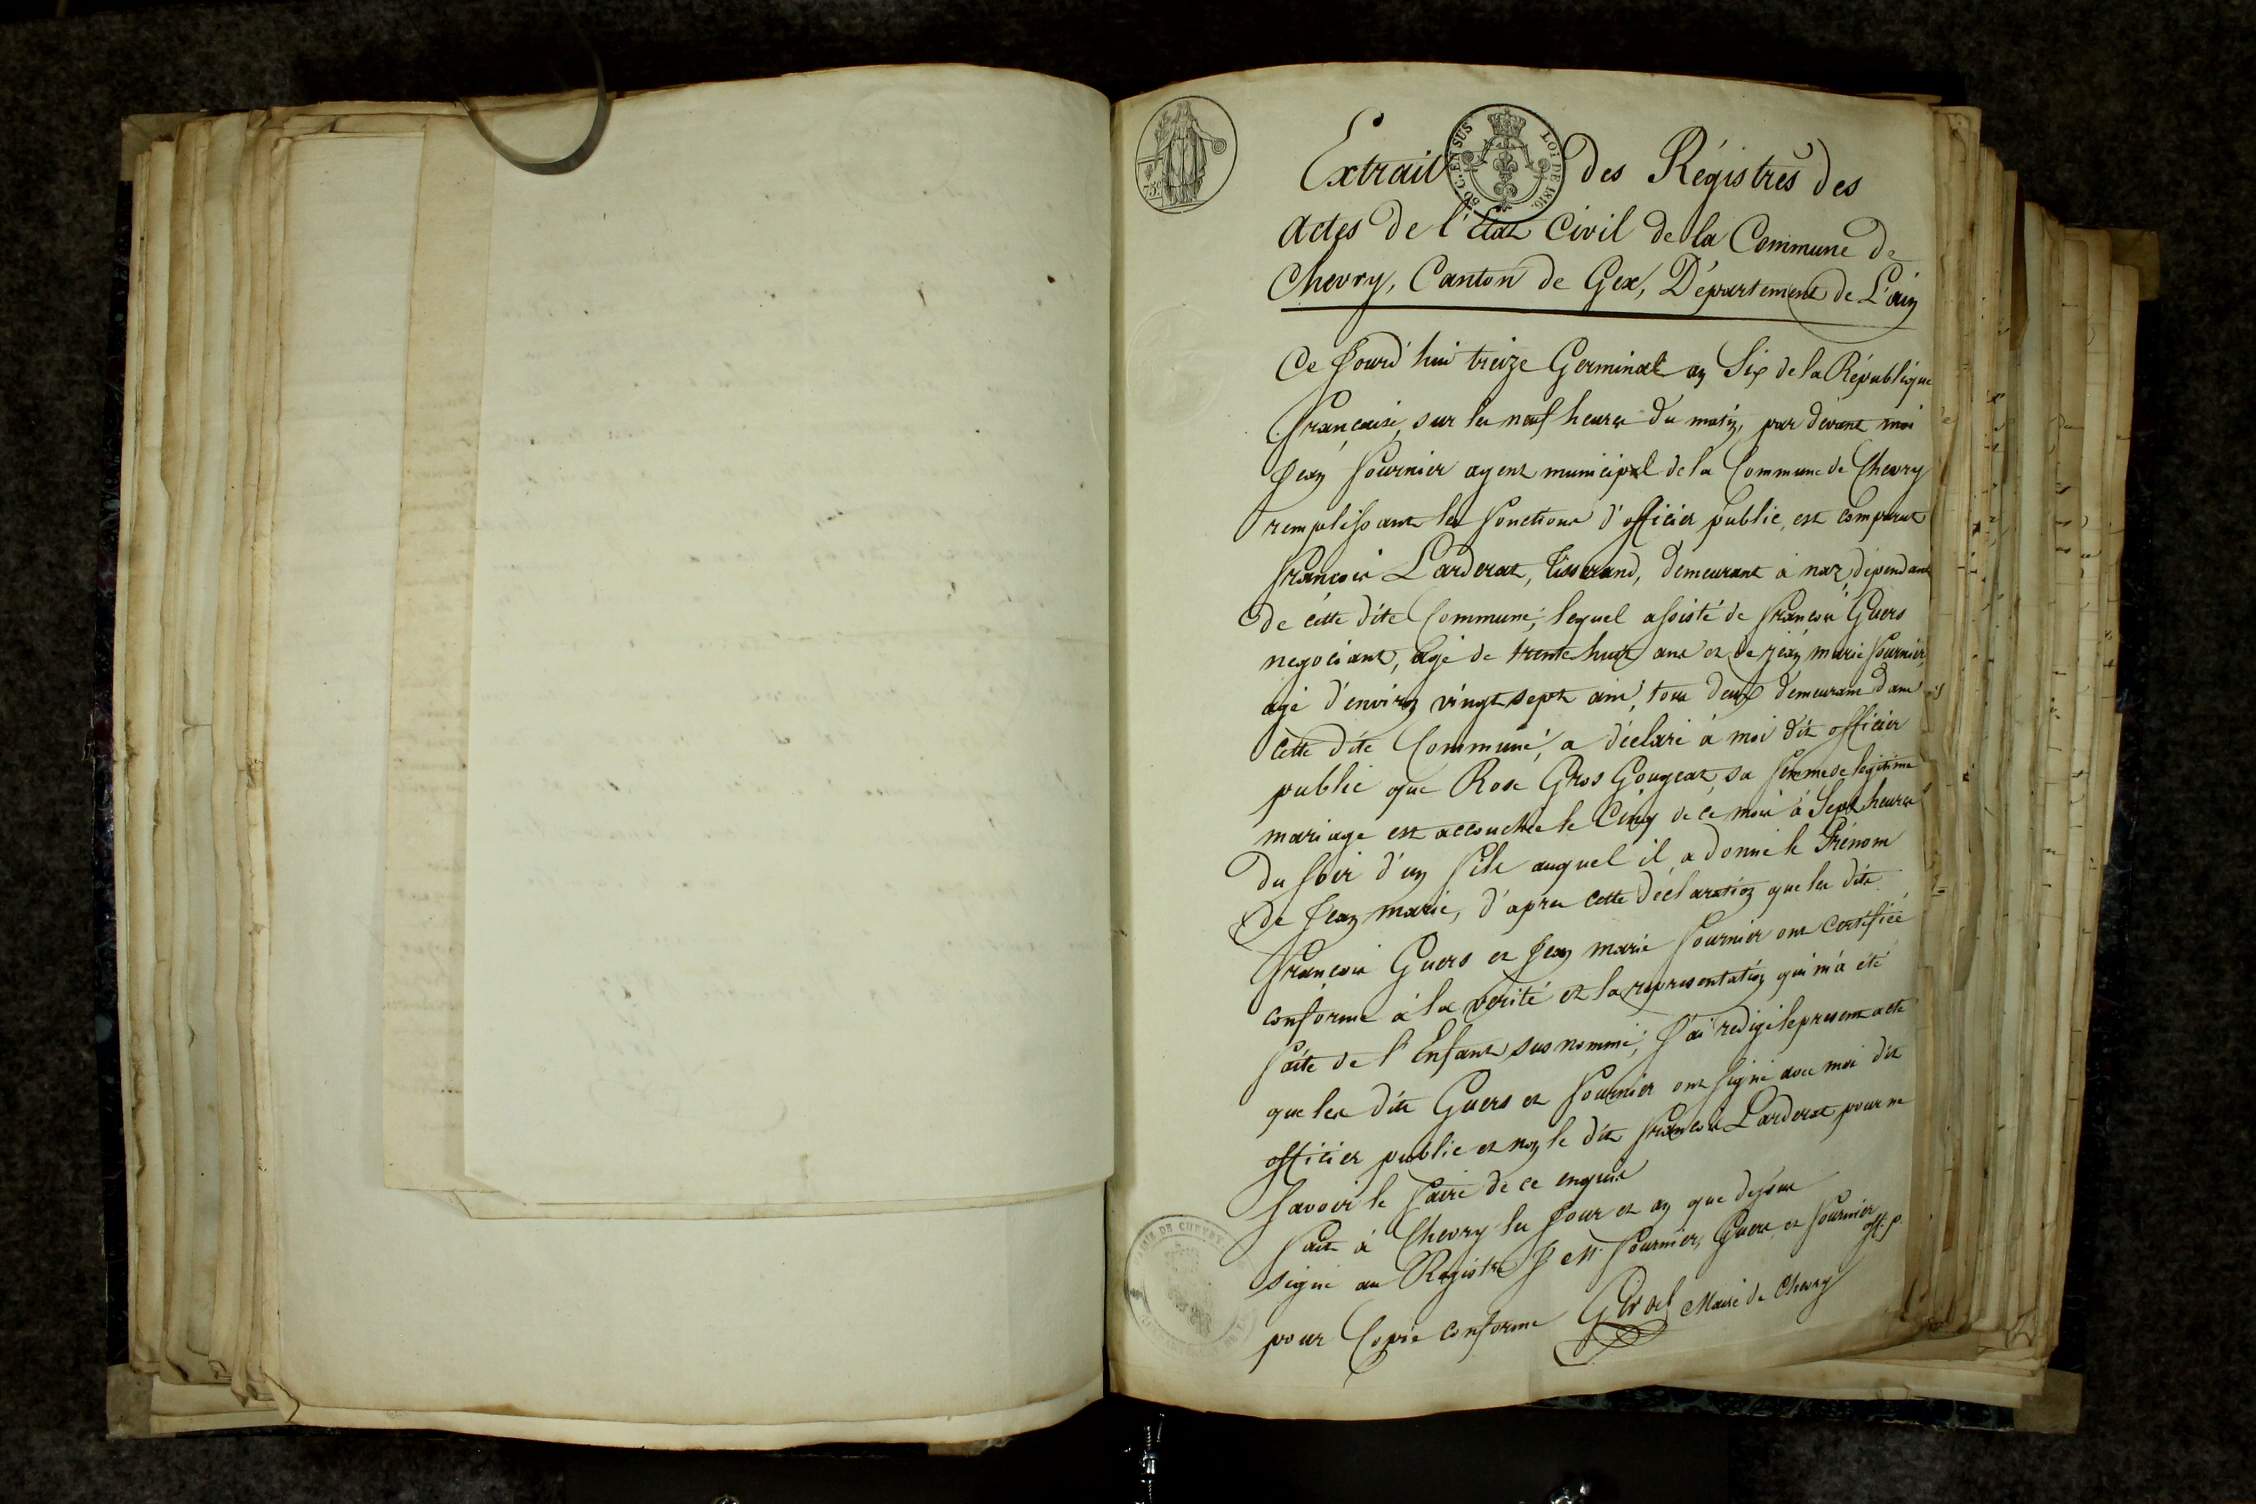 75c
50 C. EN SUS
LOI DE 1816.
Extrait des Régistres des
actes de l'état Civil de la Commune de
Chevry, Canton de Gex, Département de L'ain
Ce Jourd'hui treize Germinal an Six de la République
Française, sur les neuf heures du matin, par devant moi
Jean Fournier agent municipal de la Commune de Chevry
remplissant les fonctions d'officier public, est comparut
François Larderat, tisserand, demeurant à naz, dépendant
de cette dite Commune, lequel assisté de François Guers
negociant, âgé de trente huit ans et de jean marie Fournier,
agé d'environ vingt sept ans, tous deux demeurans dans
cette dite Commune, a déclaré à moi dit officier
public que Rose Gros Gougeat, sa femme de légitime
mariage est accouchée le Cinq de ce mois à Sept heures
du soir d'un fils auquel il a donné le Prénom
de Jean marie, d'après cette déclaration que les dits
François Guers et Jean marie Fournier ont certifiée
conforme à la verité et la représentation qui m'a été
faite de l'Enfant sus nommé, J'ai redigé le present acte
que les dits Guers et Fournier ont signé avec moi dit
officier public et non le dit François Larderat pour ne
savoir le faire de ce enquis
fait à Chevry les Jour et an que dessus
signé au Registre J M Fournier, Guers, et Fournier
off. p.
pour Copie conforme Girod Maire de Chevry
MAIRIE DE CHEVRY